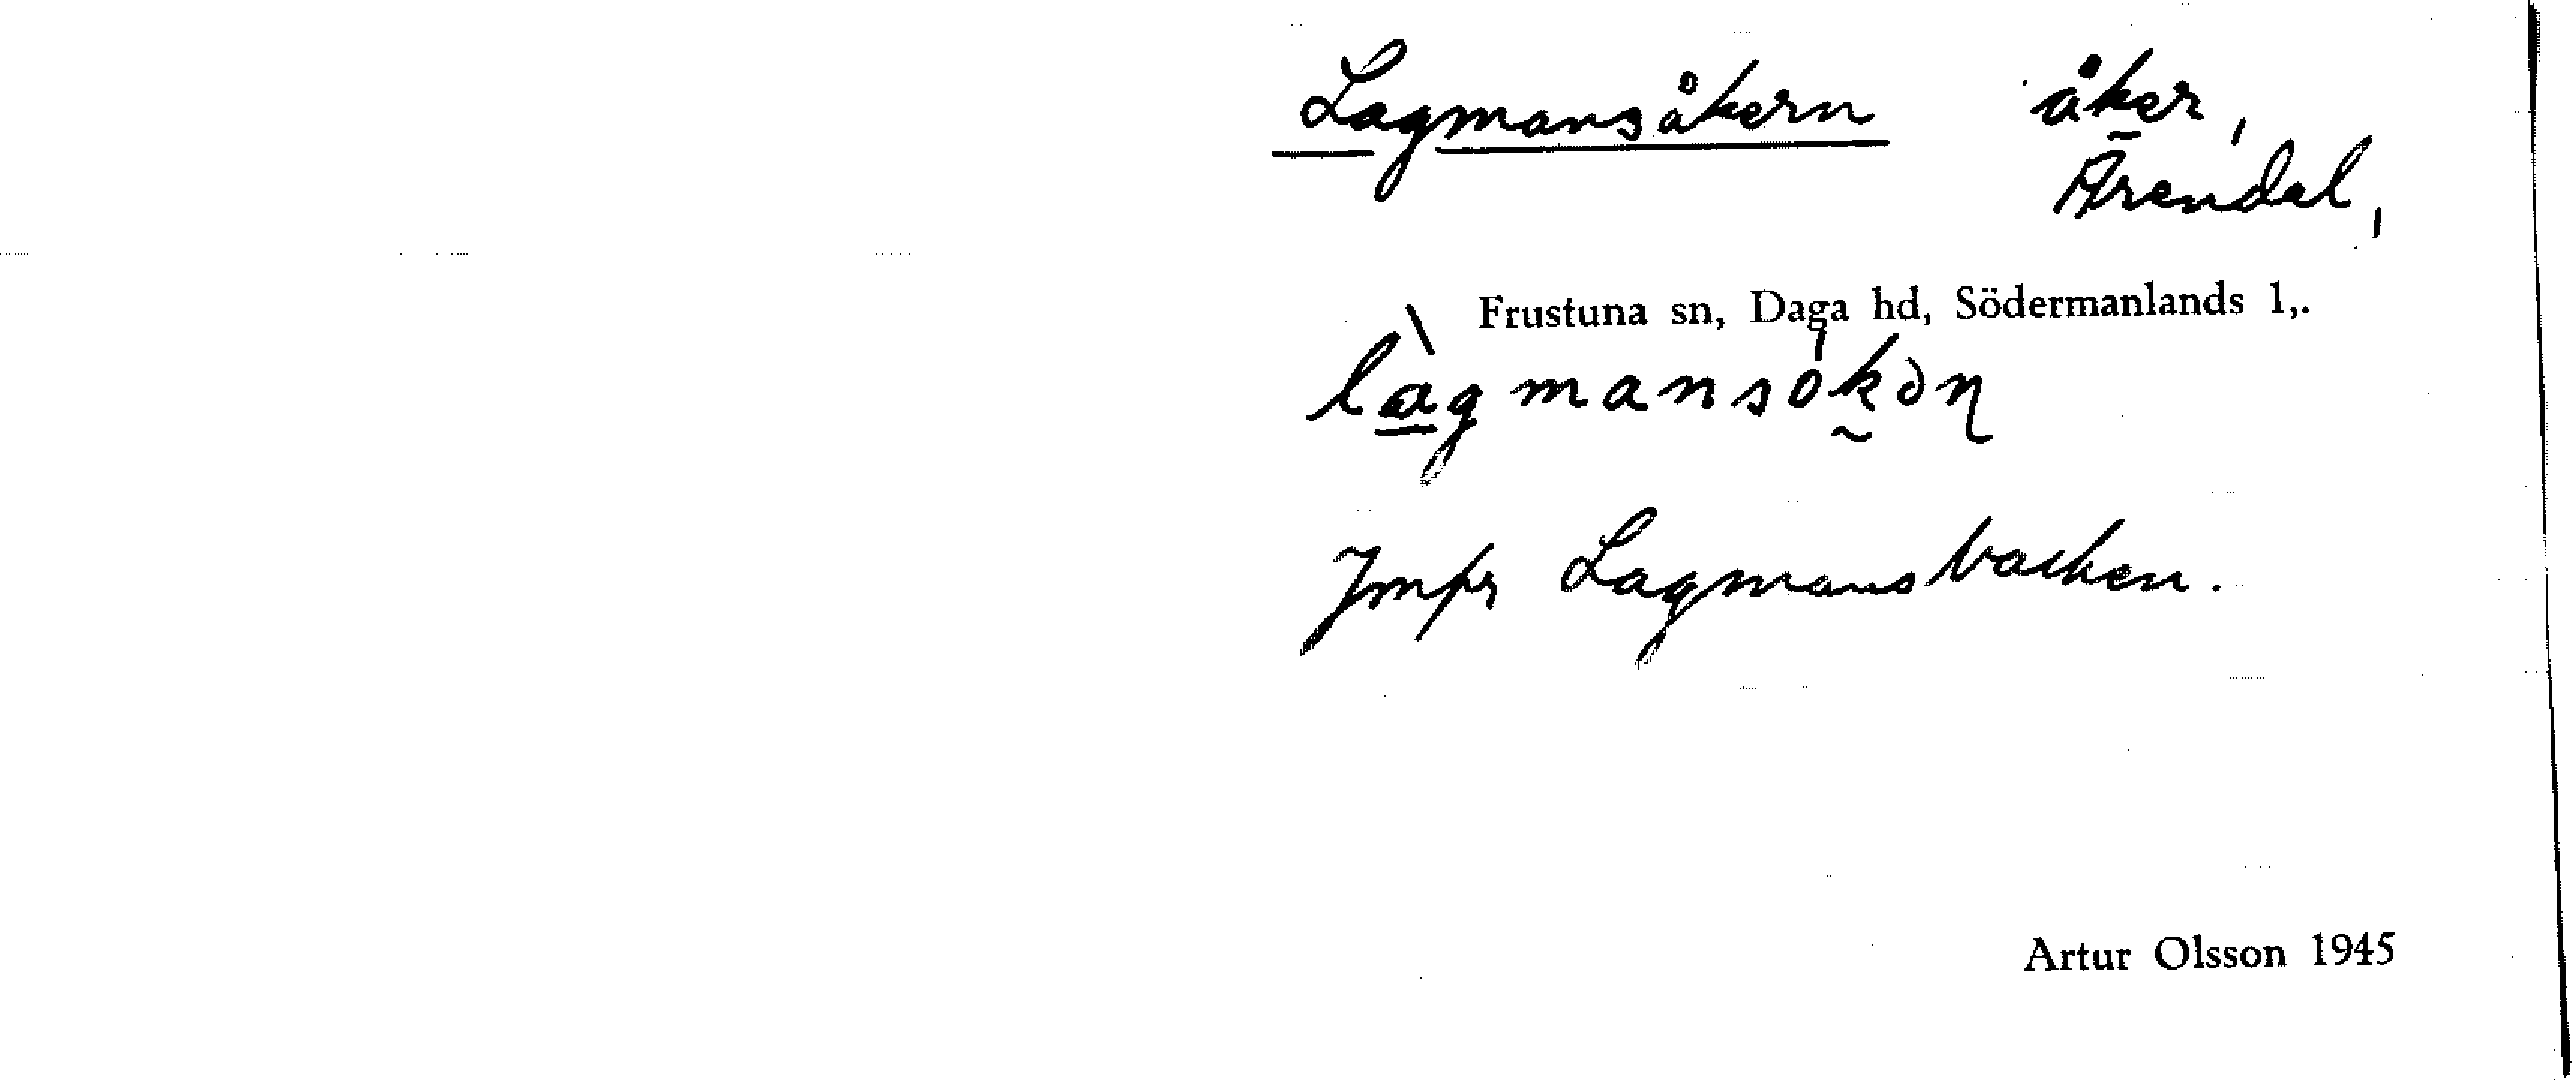 Lagmansåkern åker,
Ärendal,
Frustuna sn, Daga hd, Södermanlands l,.
làgmansòkən
Jmfr Lagmansbacken.
Artur Olsson 1945